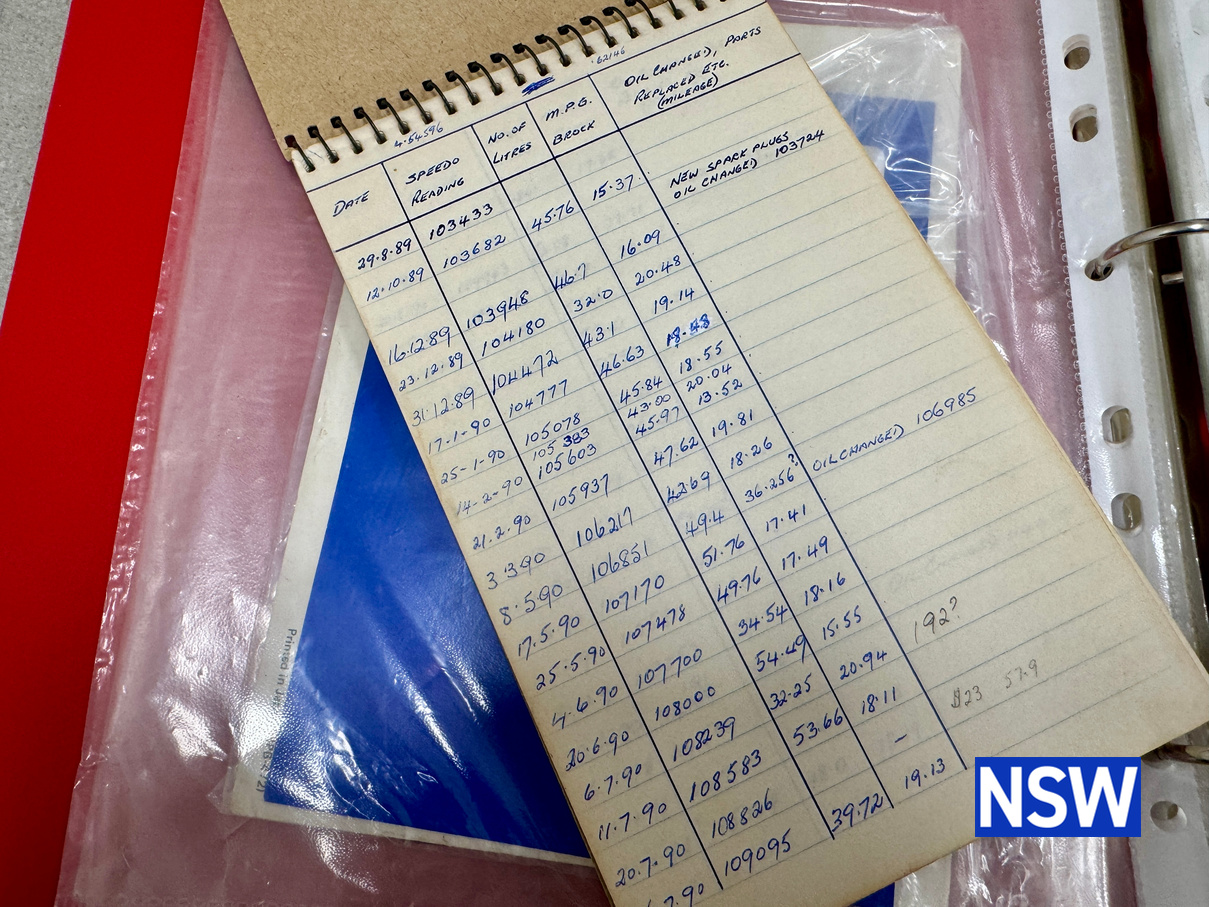 4.54596 .62146
DATE SPEEDO READING NO. OF LITRES M.P.G. BROCK OIL CHANGED, PARTS REPLACED ETC. (MILEAGE)
29.8.89 103433
12.10.89 103682 45.76 15.37 NEW SPARK PLUGS
OIL CHANGED 103724
16.12.89 103948 46.7 16.09
23.12.89 104180 32.0 20.48
31.12.89 104472 43.1 19.14
17.1-90 104777 46.63 18.48
25-1-90 105078 45.84 18.55
105383 43.00 20.04
14-2-90 105603 45.97 13.52
21.2.90 105937 47.62 19.81
3.3.90 106217 43.69 18.26
8.5.90 106851 49.4 36.256? OIL CHANGED 106985
17.5.90 107170 51.76 17.41
25.5.90 107478 49.76 17.49
4.6.90 107700 34.54 18.16
20.6.90 108000 54.49 15.55
6.7.90 108239 32.25 20.94 192?
11.7.90 108583 53.66 18.11
20.7.90 108826 – $23 57.9
7.90 109095 39.72 19.13
Printed in
NSW